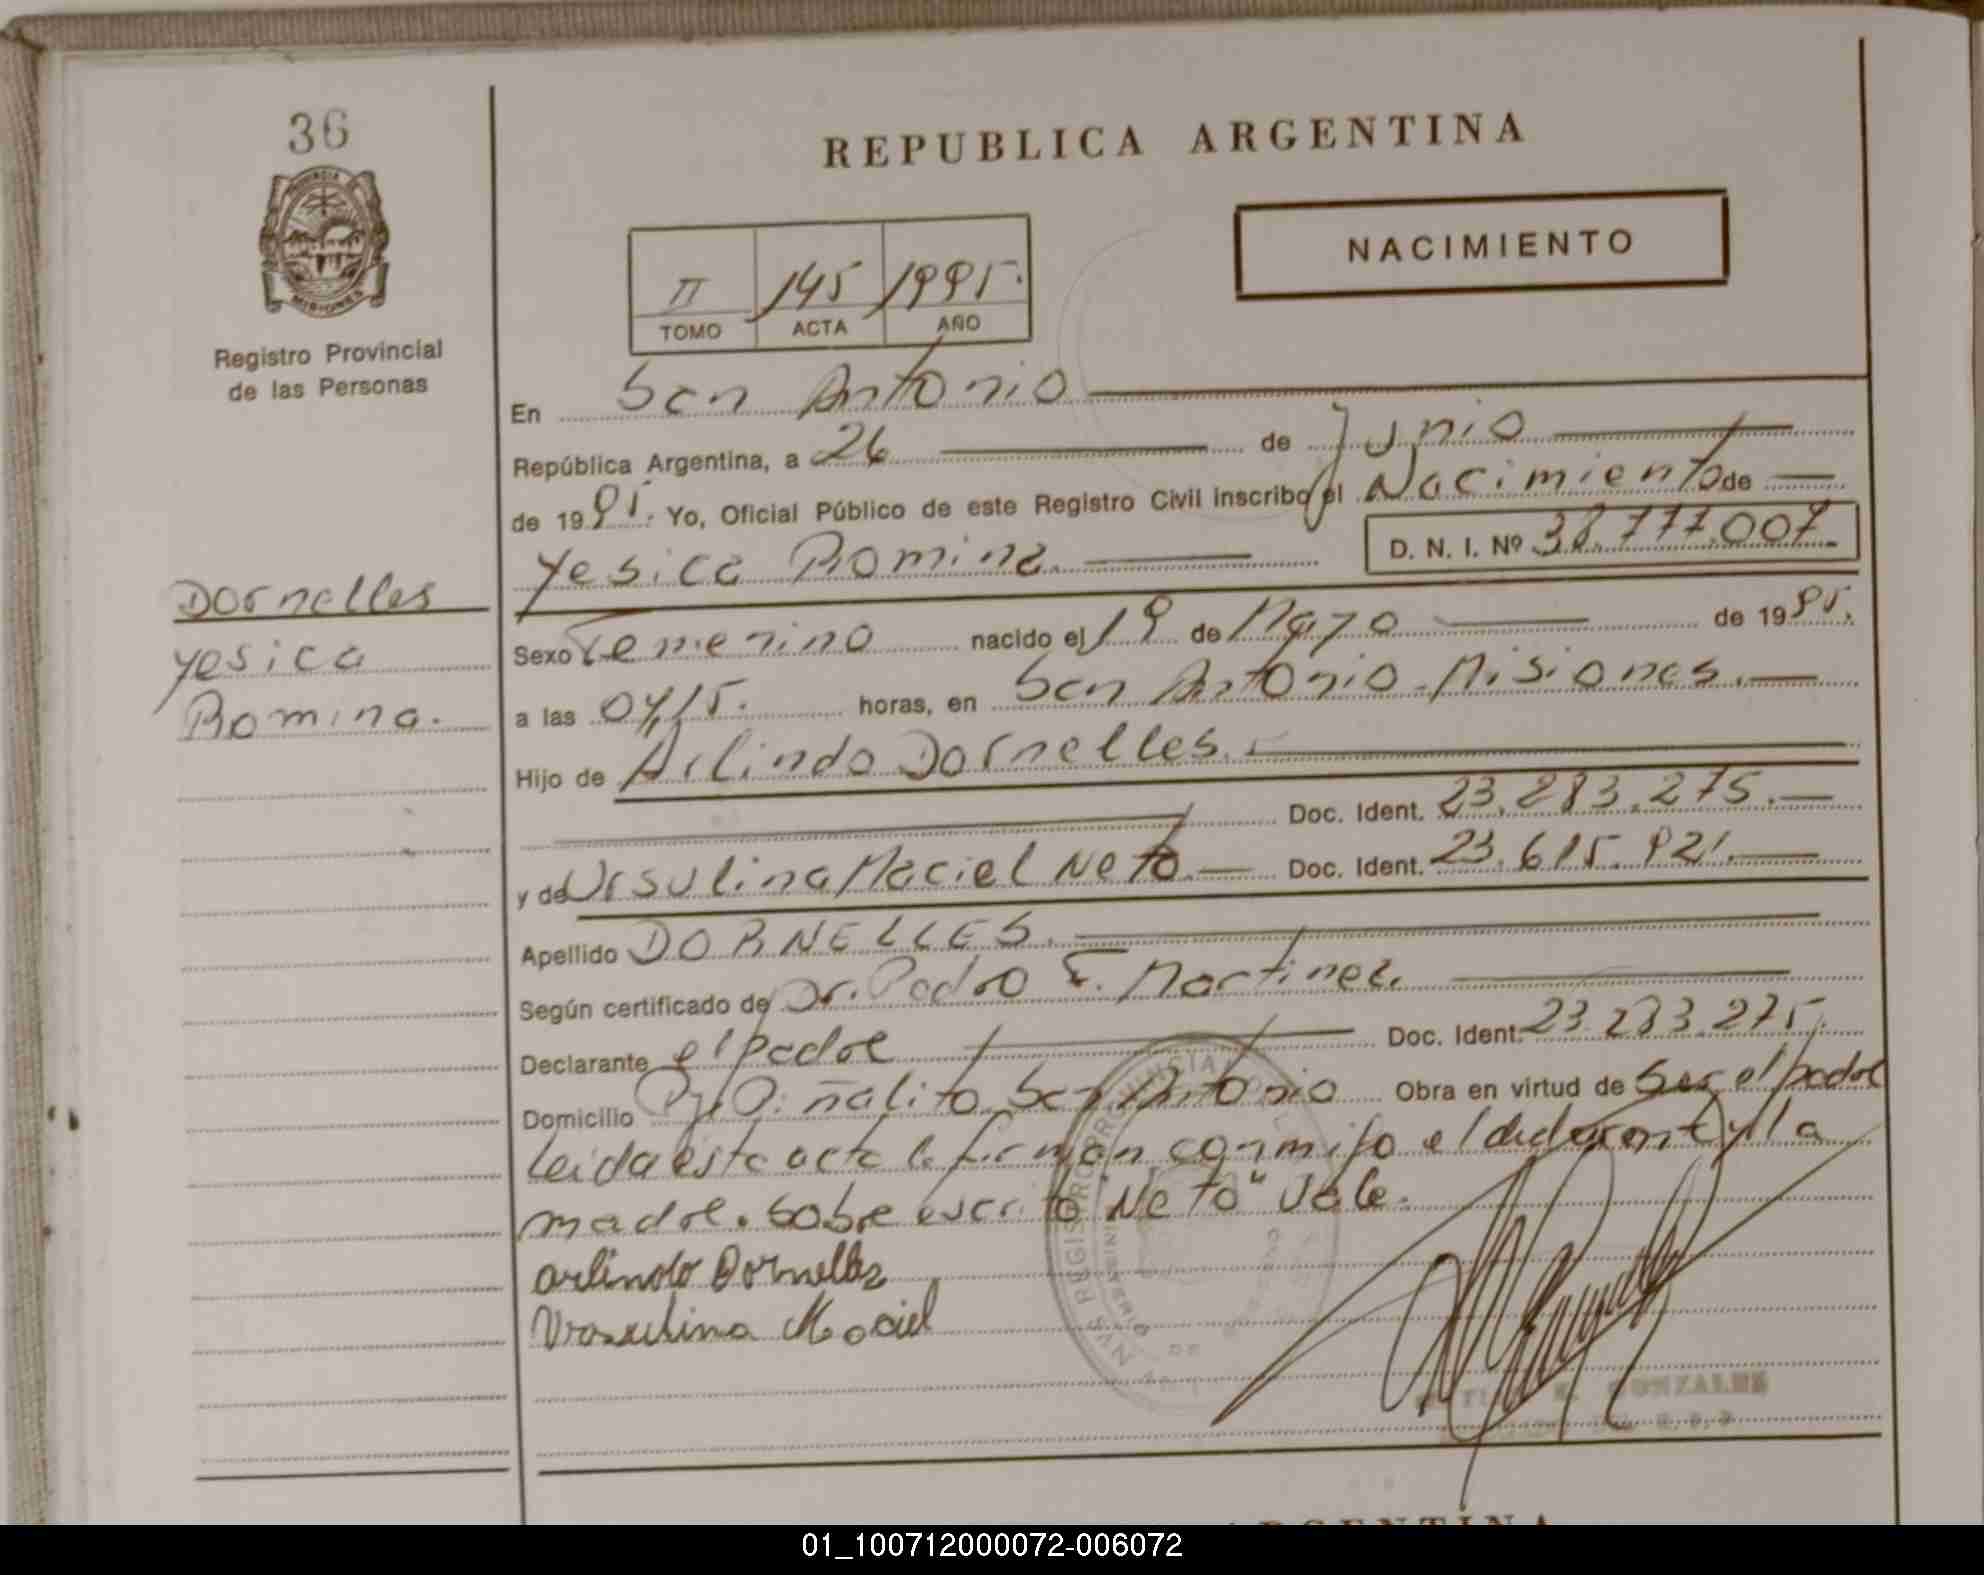 36
PROVINCIA DE
MISIONES
Registro Provincial
de las Personas
REPUBLICA ARGENTINA
NACIMIENTO
II 145 1995.
TOMO ACTA AÑO
En San Antonio
República Argentina, a 26 de Junio
de 1995. Yo, Oficial Público de este Registro Civil inscribo el Nacimiento de
Yesica Romina. D. N. I. Nº 38.777.007.
Dornelles
Yesica
Romina.
Sexo Femenino nacido el 19 de Mayo de 1995.
a las 04,15. horas, en San Antonio. Misiones.
Hijo de Arlindo Dornelles.
Doc. Ident. 23.283.275.
y de Ursulina Maciel Neto. Doc. Ident. 23.615.921.
Apellido DORNELLES.
Según certificado de Dr. Pedro F. Martinez.
Declarante el padre Doc. Ident. 23.283.275.
Domicilio Piñalito San Antonio Obra en virtud de Ser el padre
Leida este acta la firman conmigo el declarante y la
madre. Sobre escrito "Neto" Vale.
Arlindo Dornelles
Urssulina Maciel
GONZALEZ
ARGENTINA
01_100712000072-006072